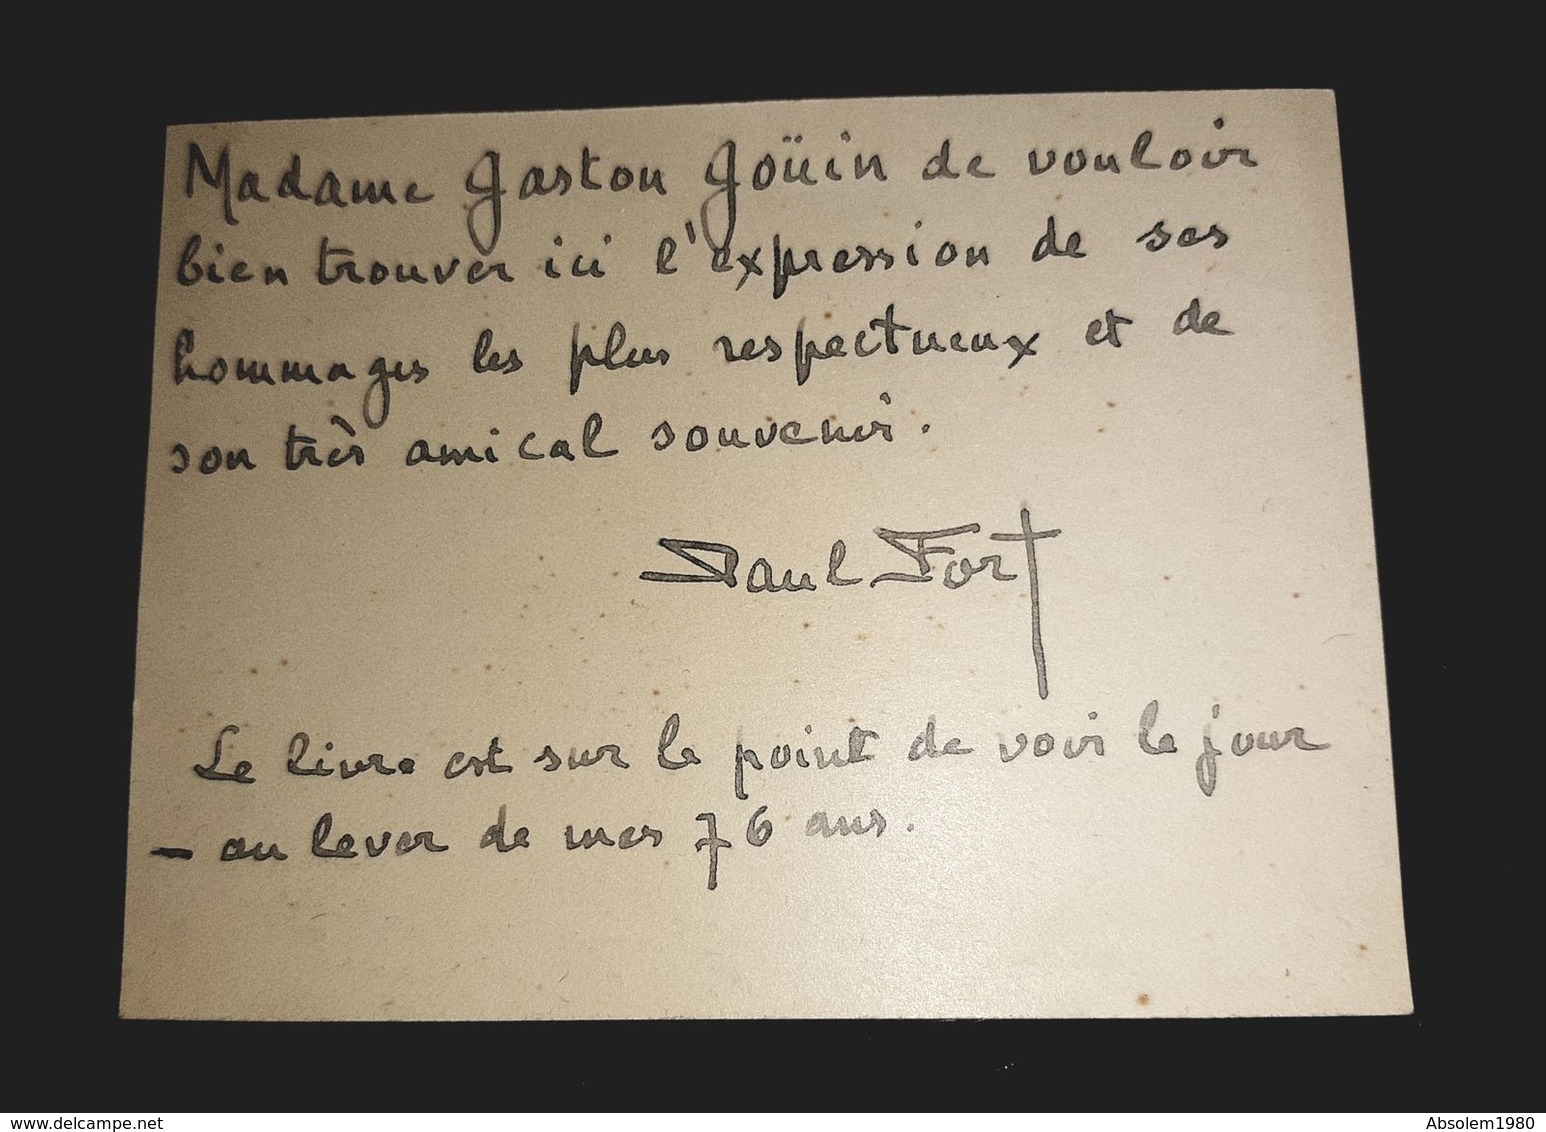 Madame Gaston Goüin de vouloir
bien trouver ici l'expression de ses
hommages les plus respectueux et de
son très amical souvenir.
Paul Fort
Le livre est sur le point de voir le jour
— au lever de mes 76 ans.
www.delcampe.net
Absolem1980